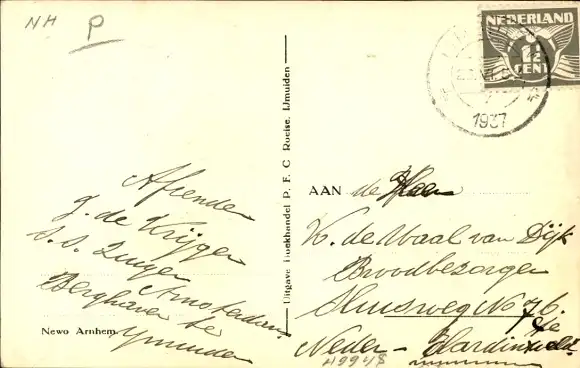 NH P
NEDERLAND
1½
CENT
1937
Afzender
J. de Krijger
S.S. Amsterdam
Berghaven te
Ymuiden
Newo Arnhem.
Uitgave Boekhandel P. F. C. Roelse. IJmuiden
AAN de Heer
K. de Waal van Dijk
Broodbezorger
Sluisweg No 76.
Neder - Hardinxveld
H9948